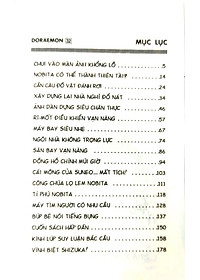 DORAEMON 32 MỤC LỤC
CHUI VÀO MÀN ẢNH KHỔNG LỒ 5
NOBITA CÓ THỂ THÀNH THIÊN TÀI? 14
CẦN CÂU ĐỒ VẬT ĐÁNH RƠI 24
XÂY DỰNG LẠI NHÀ NGHỈ ĐỔ NÁT 31
ẢNH DÁN DỤNG SIÊU CHÂN THỰC 41
RI-MỐT ĐIỀU KHIỂN VẠN NĂNG 51
MÁY BAY SIÊU NHẸ 61
NGÔI NHÀ KHÔNG TRỌNG LỰC 71
SÂN BAY VẠN NĂNG 82
ĐỒNG HỒ CHỈNH MÚI GIỜ 93
CÁI MỒNG CỦA SUNEO... MẤT TÍCH! 103
CÔNG CHÚA LỌ LEM NOBITA 111
TỈ PHÚ NOBITA 118
MÁY TÌM NGƯỜI CÓ NHU CẦU 128
BÚP BÊ NÓI TIẾNG BỤNG 138
CUỐN SÁCH HẤP DẪN 148
KÍNH LÚP SUY LUẬN BẮC CẦU 158
VĨNH BIỆT SHIZUKA! 178